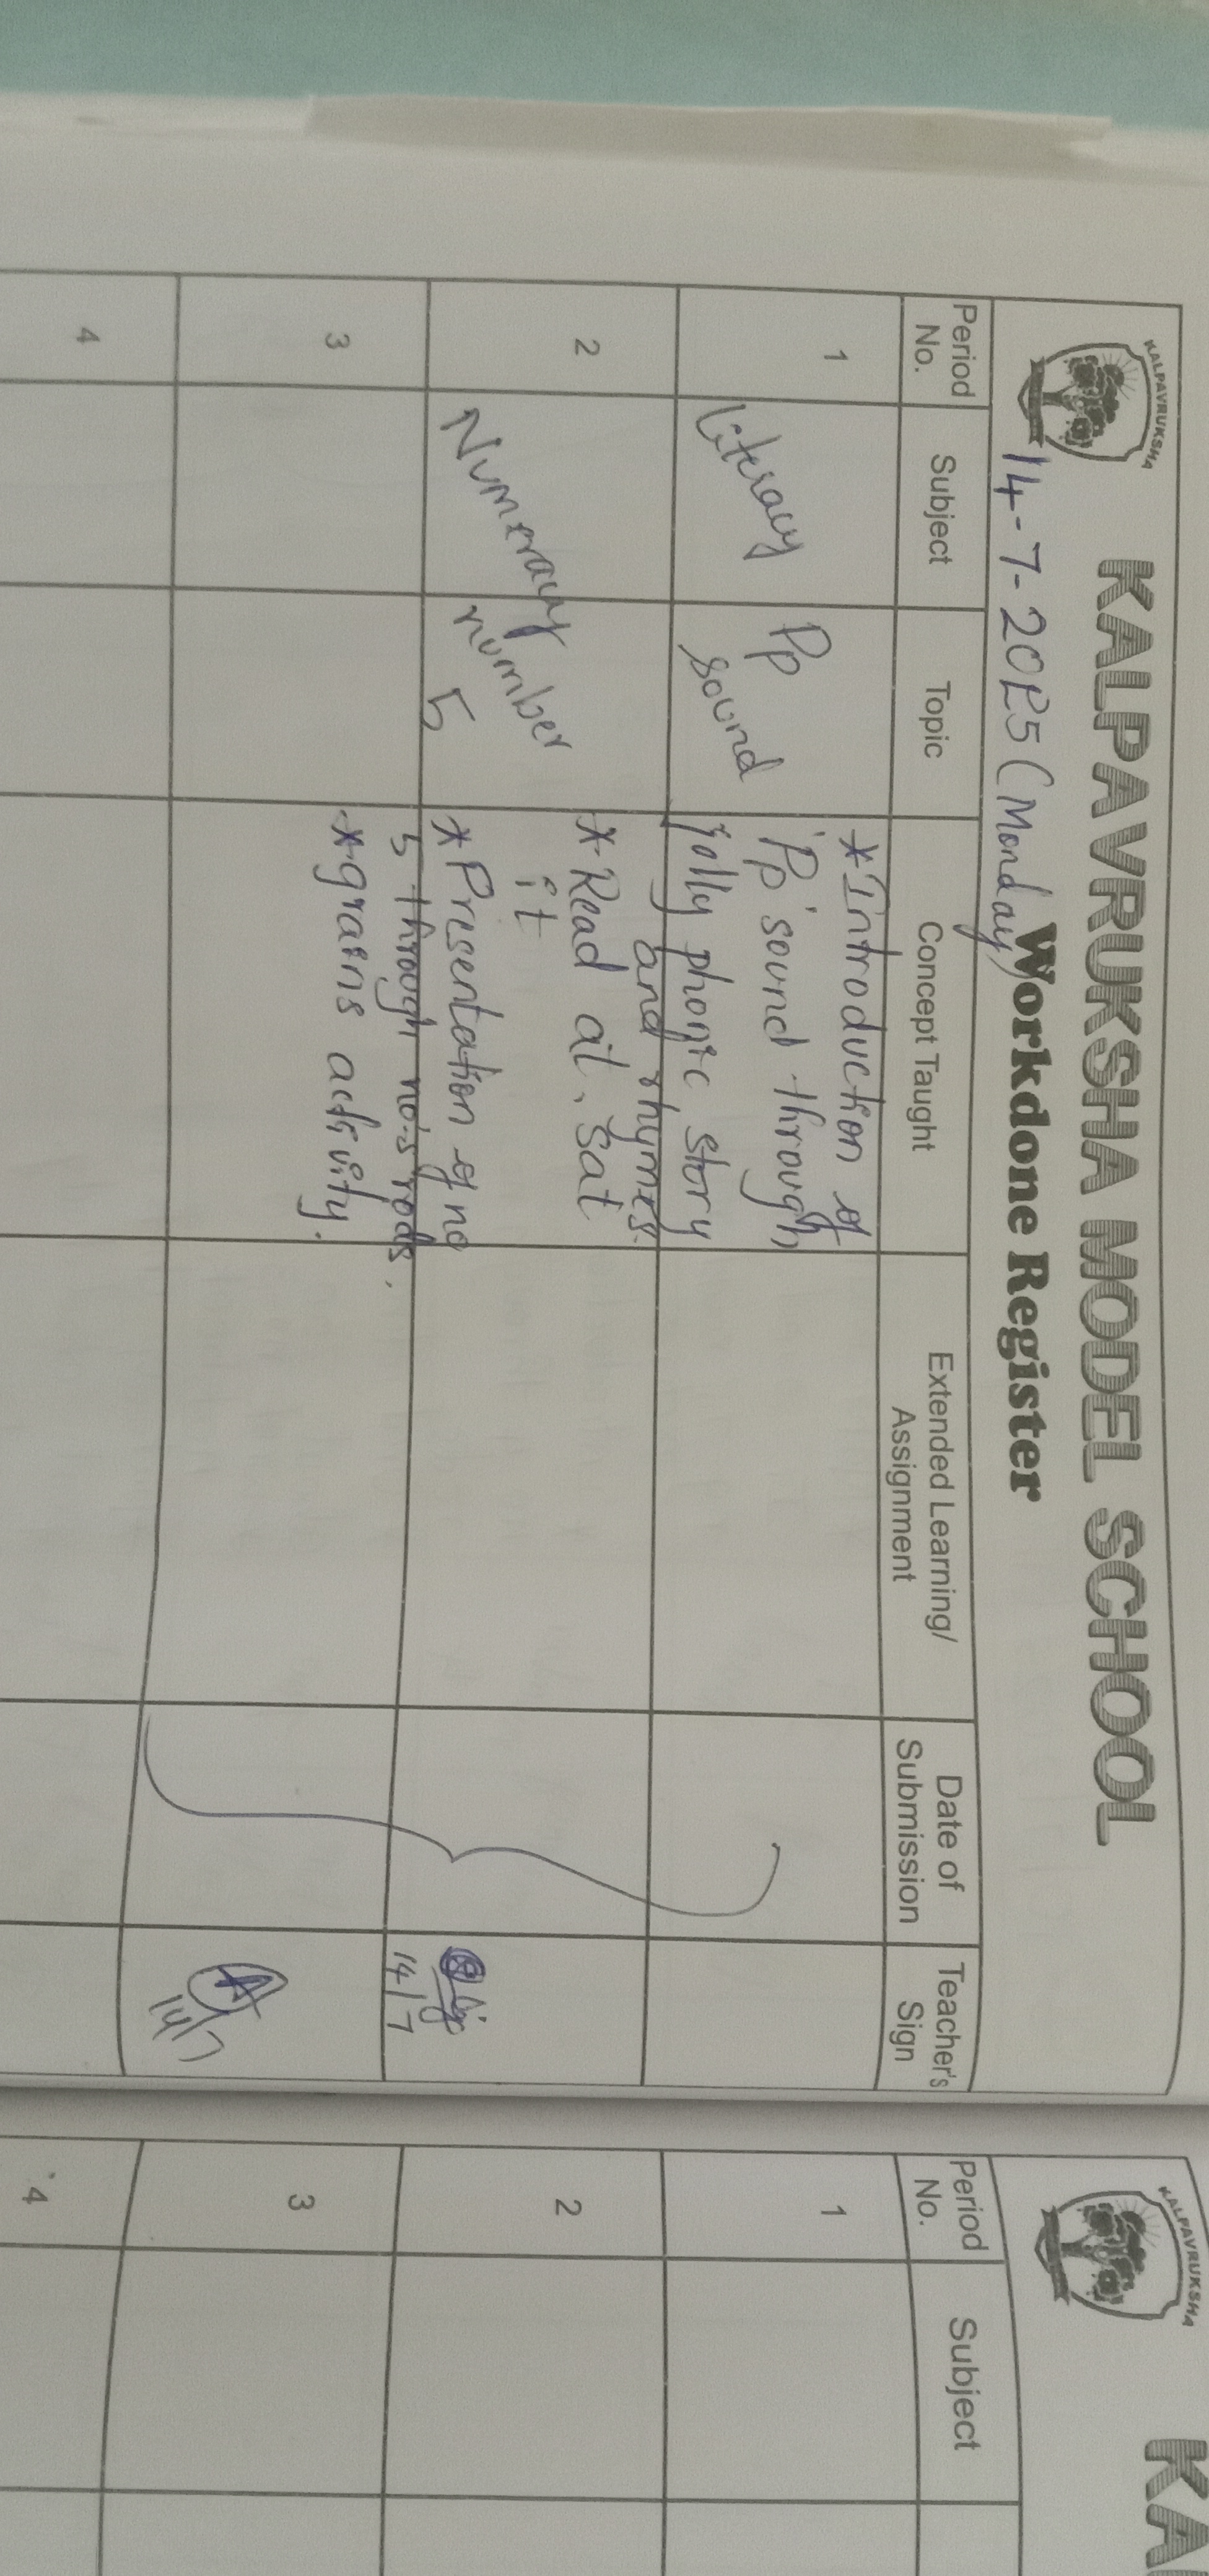 KALPAVRUKSHA
KALPAVRUKSHA MODEL SCHOOL
Workdone Register
14-7-2025 (Monday)
Period No. Subject Topic Concept Taught Extended Learning/ Assignment Date of Submission Teacher's Sign
1 Literacy Pp sound *Introduction of
'Pp' sound through
jolly phonic, story
and rhymes.
*Read at, sat
it
2 Numeracy number 5 *Presentation of no
5 through no.s rods.
14/7
3 *grains activity.
A
14/7
4
KALPAVRUKSHA
KA
Period No. Subject
1
2
3
4